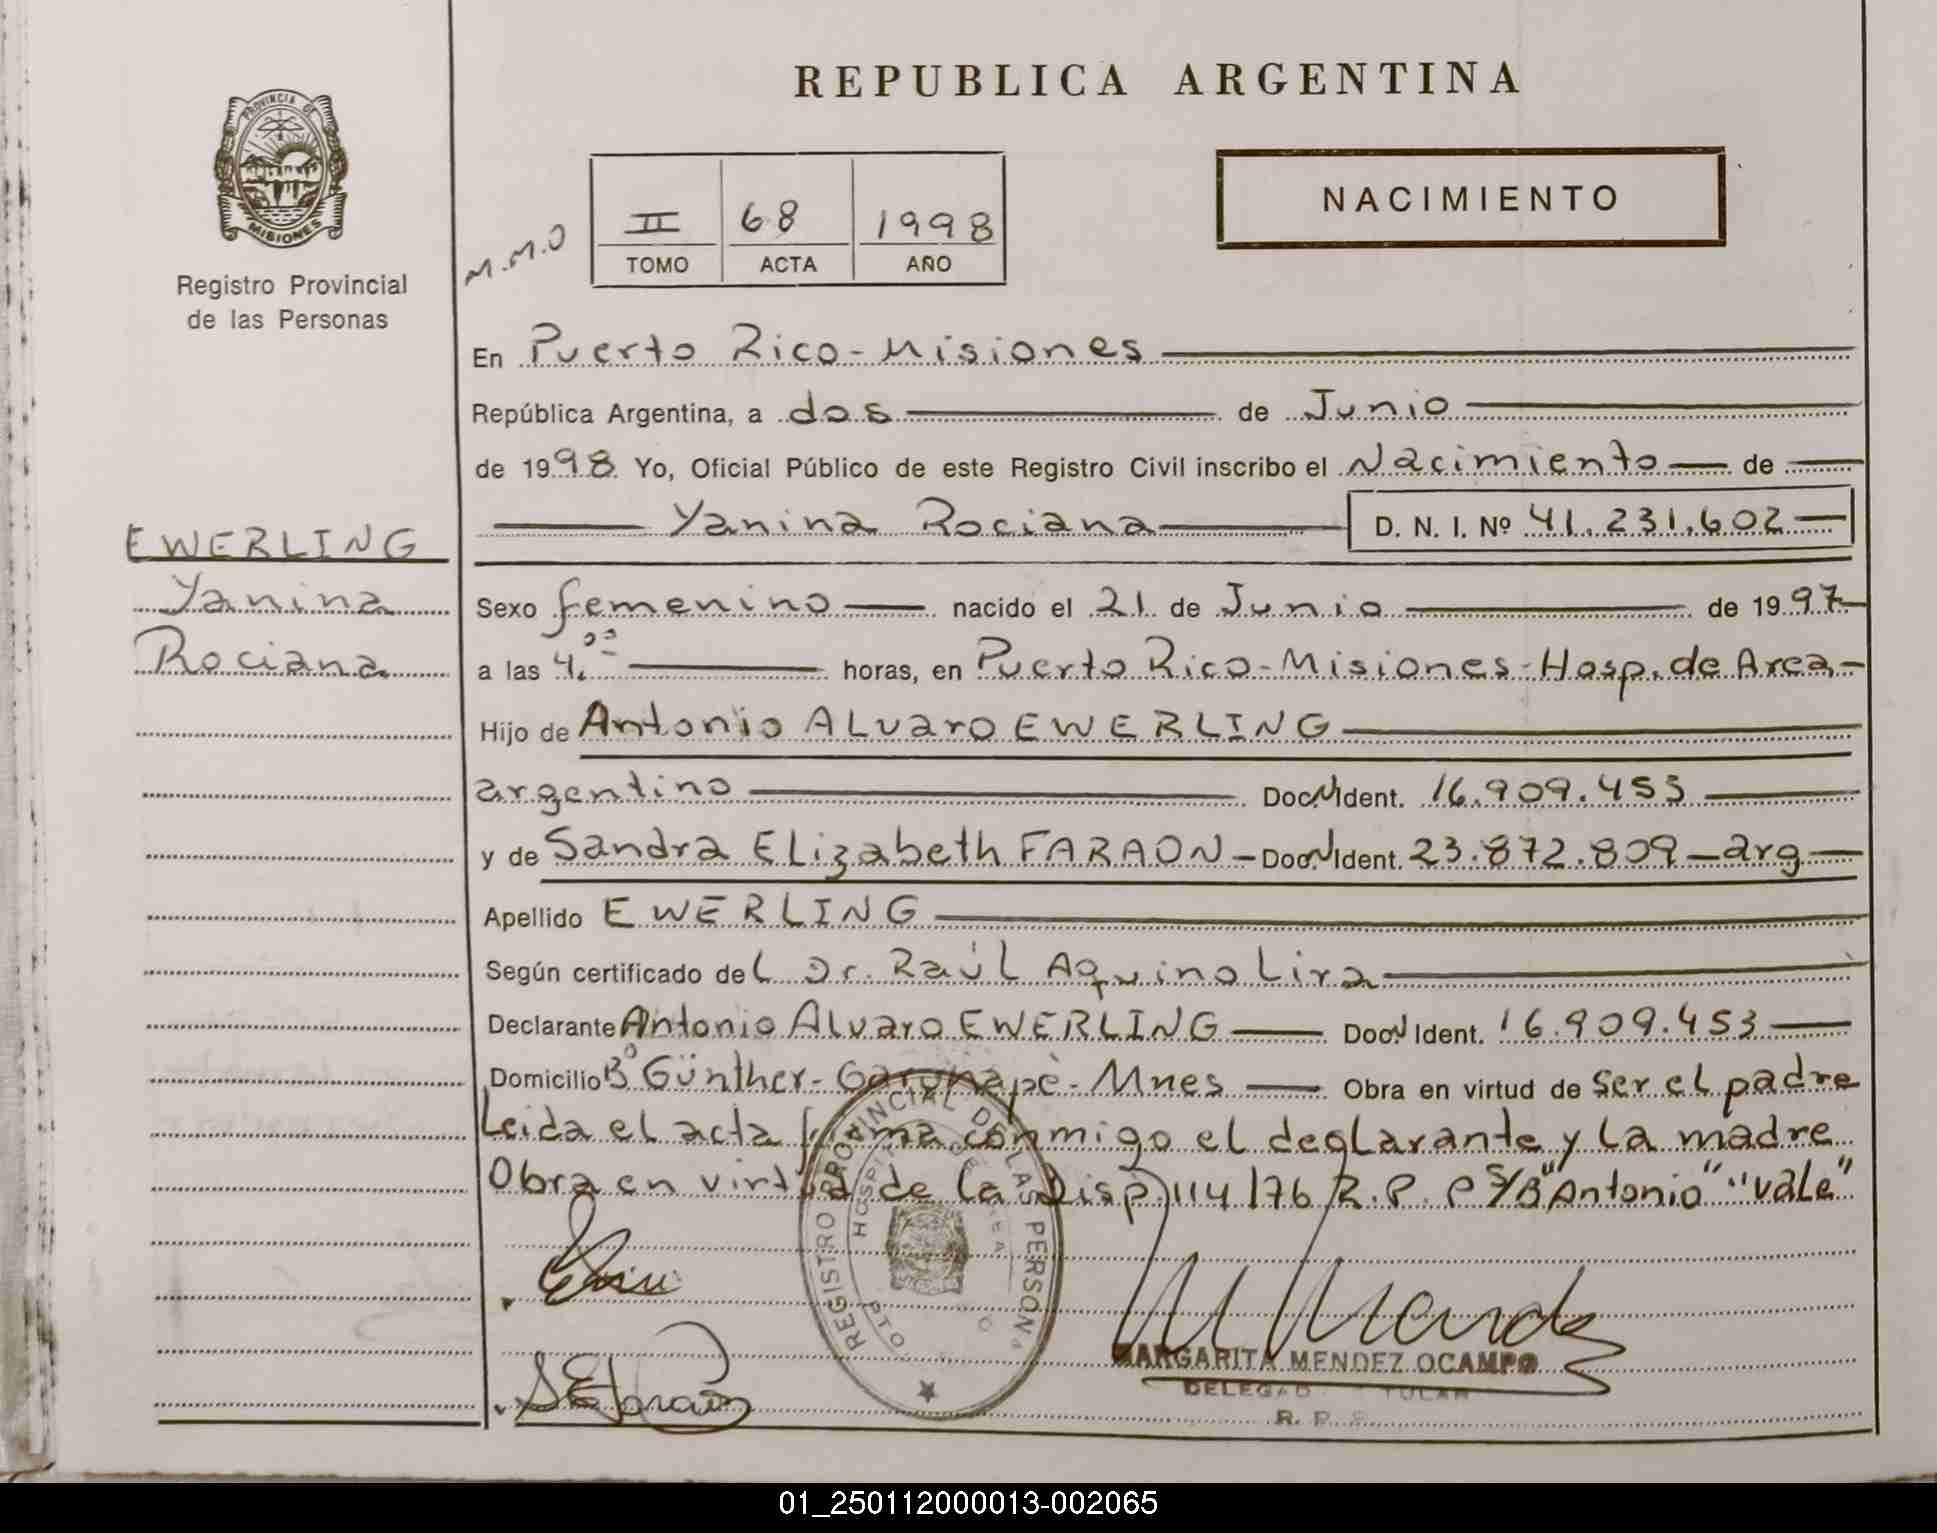 REPUBLICA ARGENTINA
PROVINCIA DE
MISIONES
Registro Provincial
de las Personas
M.M.O
II 68 1998
TOMO ACTA AÑO
NACIMIENTO
En Puerto Rico - Misiones
República Argentina, a dos de Junio
de 1998 Yo, Oficial Público de este Registro Civil inscribo el Nacimiento de
Yanina Rociana D. N. I. Nº 41.231.602
EWERLING
Yanina
Rociana
Sexo femenino nacido el 21 de Junio de 1997
a las 4.00 horas, en Puerto Rico - Misiones - Hosp. de Area
Hijo de Antonio ALvaro EWERLING
argentino Doc. N Ident. 16.909.453
y de Sandra ELizabeth FARAON - Doc. N Ident. 23.872.809 - arg
Apellido EWERLING
Según certificado del Dr. Raúl Aquino Lira
Declarante Antonio ALvaro EWERLING Doc. N Ident. 16.909.453
Domicilio Bº Günther - Garuhapè - Mnes Obra en virtud de ser el padre
Leida el acta firma conmigo el declarante y la madre
Obra en virtud de la Disp. 114/76 R.P.P S/B "Antonio" "vale"
REGISTRO PROVINCIAL DE LAS PERSONAS
HOSPITAL DE AREA
PTO
MARGARITA MENDEZ OCAMPO
R. P. P.
01_250112000013-002065